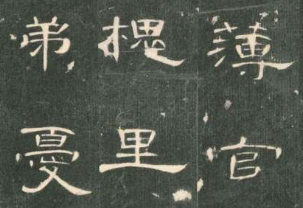 薄官
槐里
弟憂